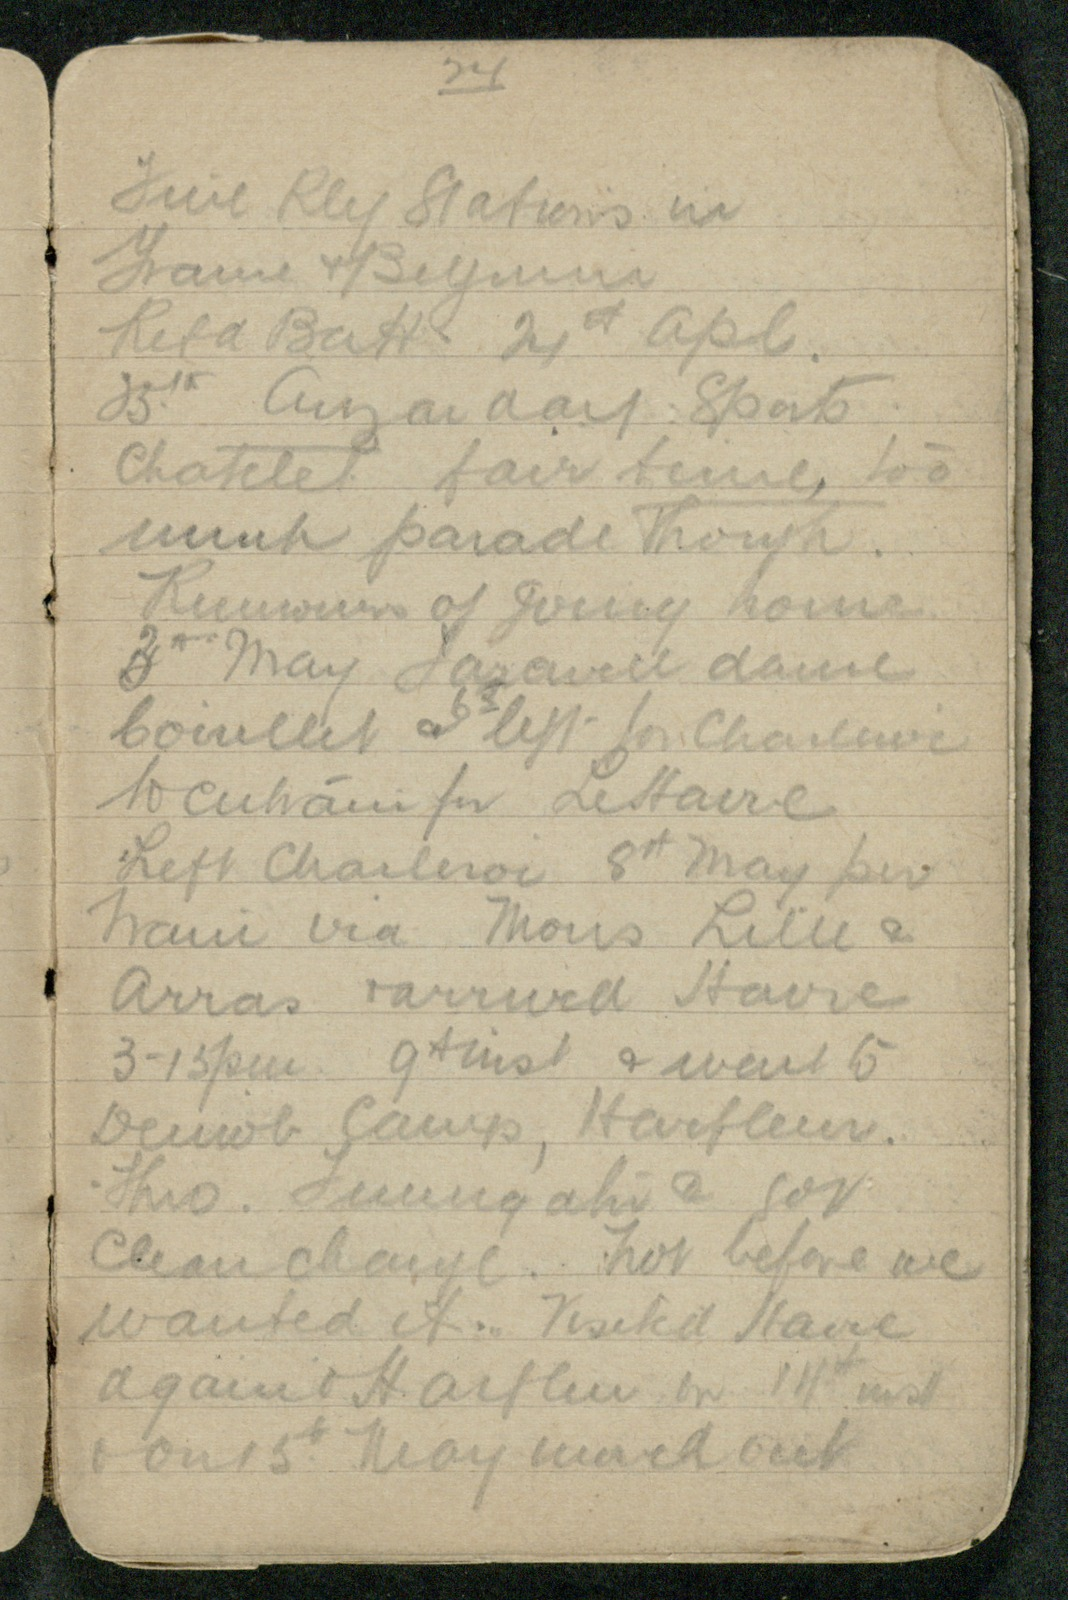 24
Fine Rly Stations in
France & Belgium
Rejd Batt. 21st Apl.
25th Anzac day Sports
Chatelet fair time, too
much parade though.
Rumours of going home
May Farewell dance
Couillet & left for Charleroi
to entrain for Le Havre
Left Charleroi 8th May per
train via Mons Lille &
Arras & arrived Havre
3-15pm 9th inst & went to
Demob Camp, Harfleur.
Thro. Fumigator & got
Clean change. Not before we
wanted it. Visited Havre
again & Harfleur on 14th inst
& on 15th May march out